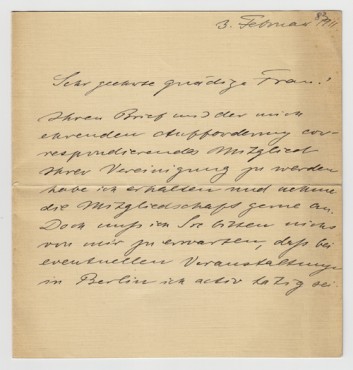 3. Februar 1911
Sehr geehrte gnädige Frau!
Ihren Brief und der mich
ehrenden Aufforderung cor-
respondierendes Mitglied
Ihrer Vereinigung zu werden
habe ich erhalten und nehme
die Mitgliedschaft gerne an.
Doch muß ich Sie bitten nichts
von mir zu erwarten, daß bei
eventuellen Veranstaltungen
in Berlin ich activ tätig sei.